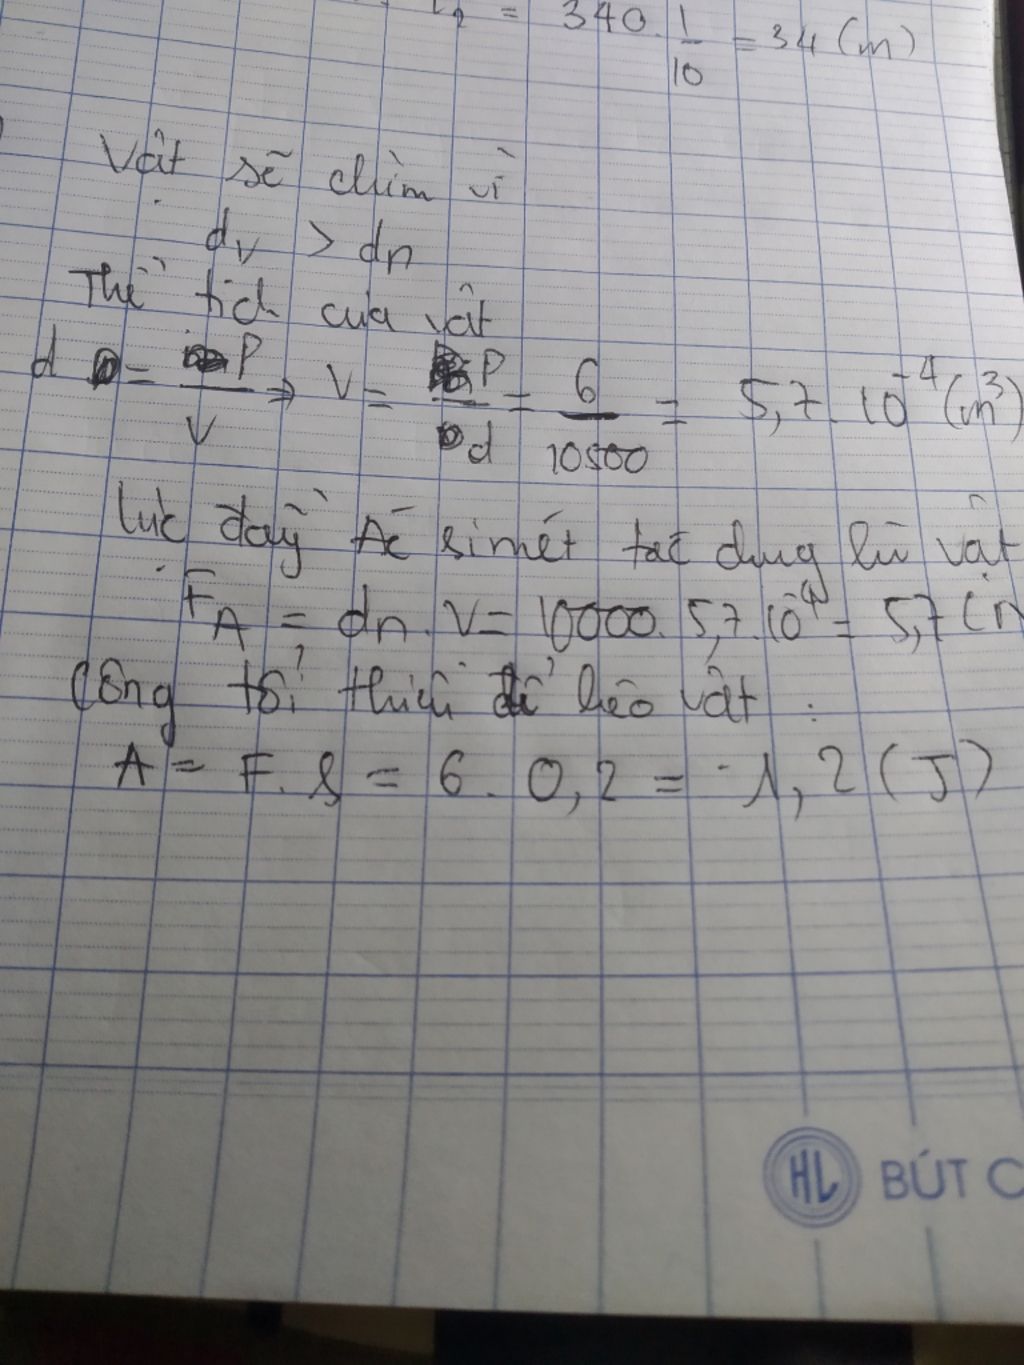 = 340. 1/10 = 34 (m)
Vật sẽ chìm vì
dv > dn
Thể tích của vật
d = P/V => V = P/d = 6/10500 = 5,7. 10^-4 (m^3)
lực đẩy Ác simét tác dụng lên vật
FA = dn. V = 10000. 5,7. 10^-4 = 5,7 (n
Công tối thiểu để kéo vật :
A = F. s = 6. 0,2 = 1,2 (J)
HL BÚT C